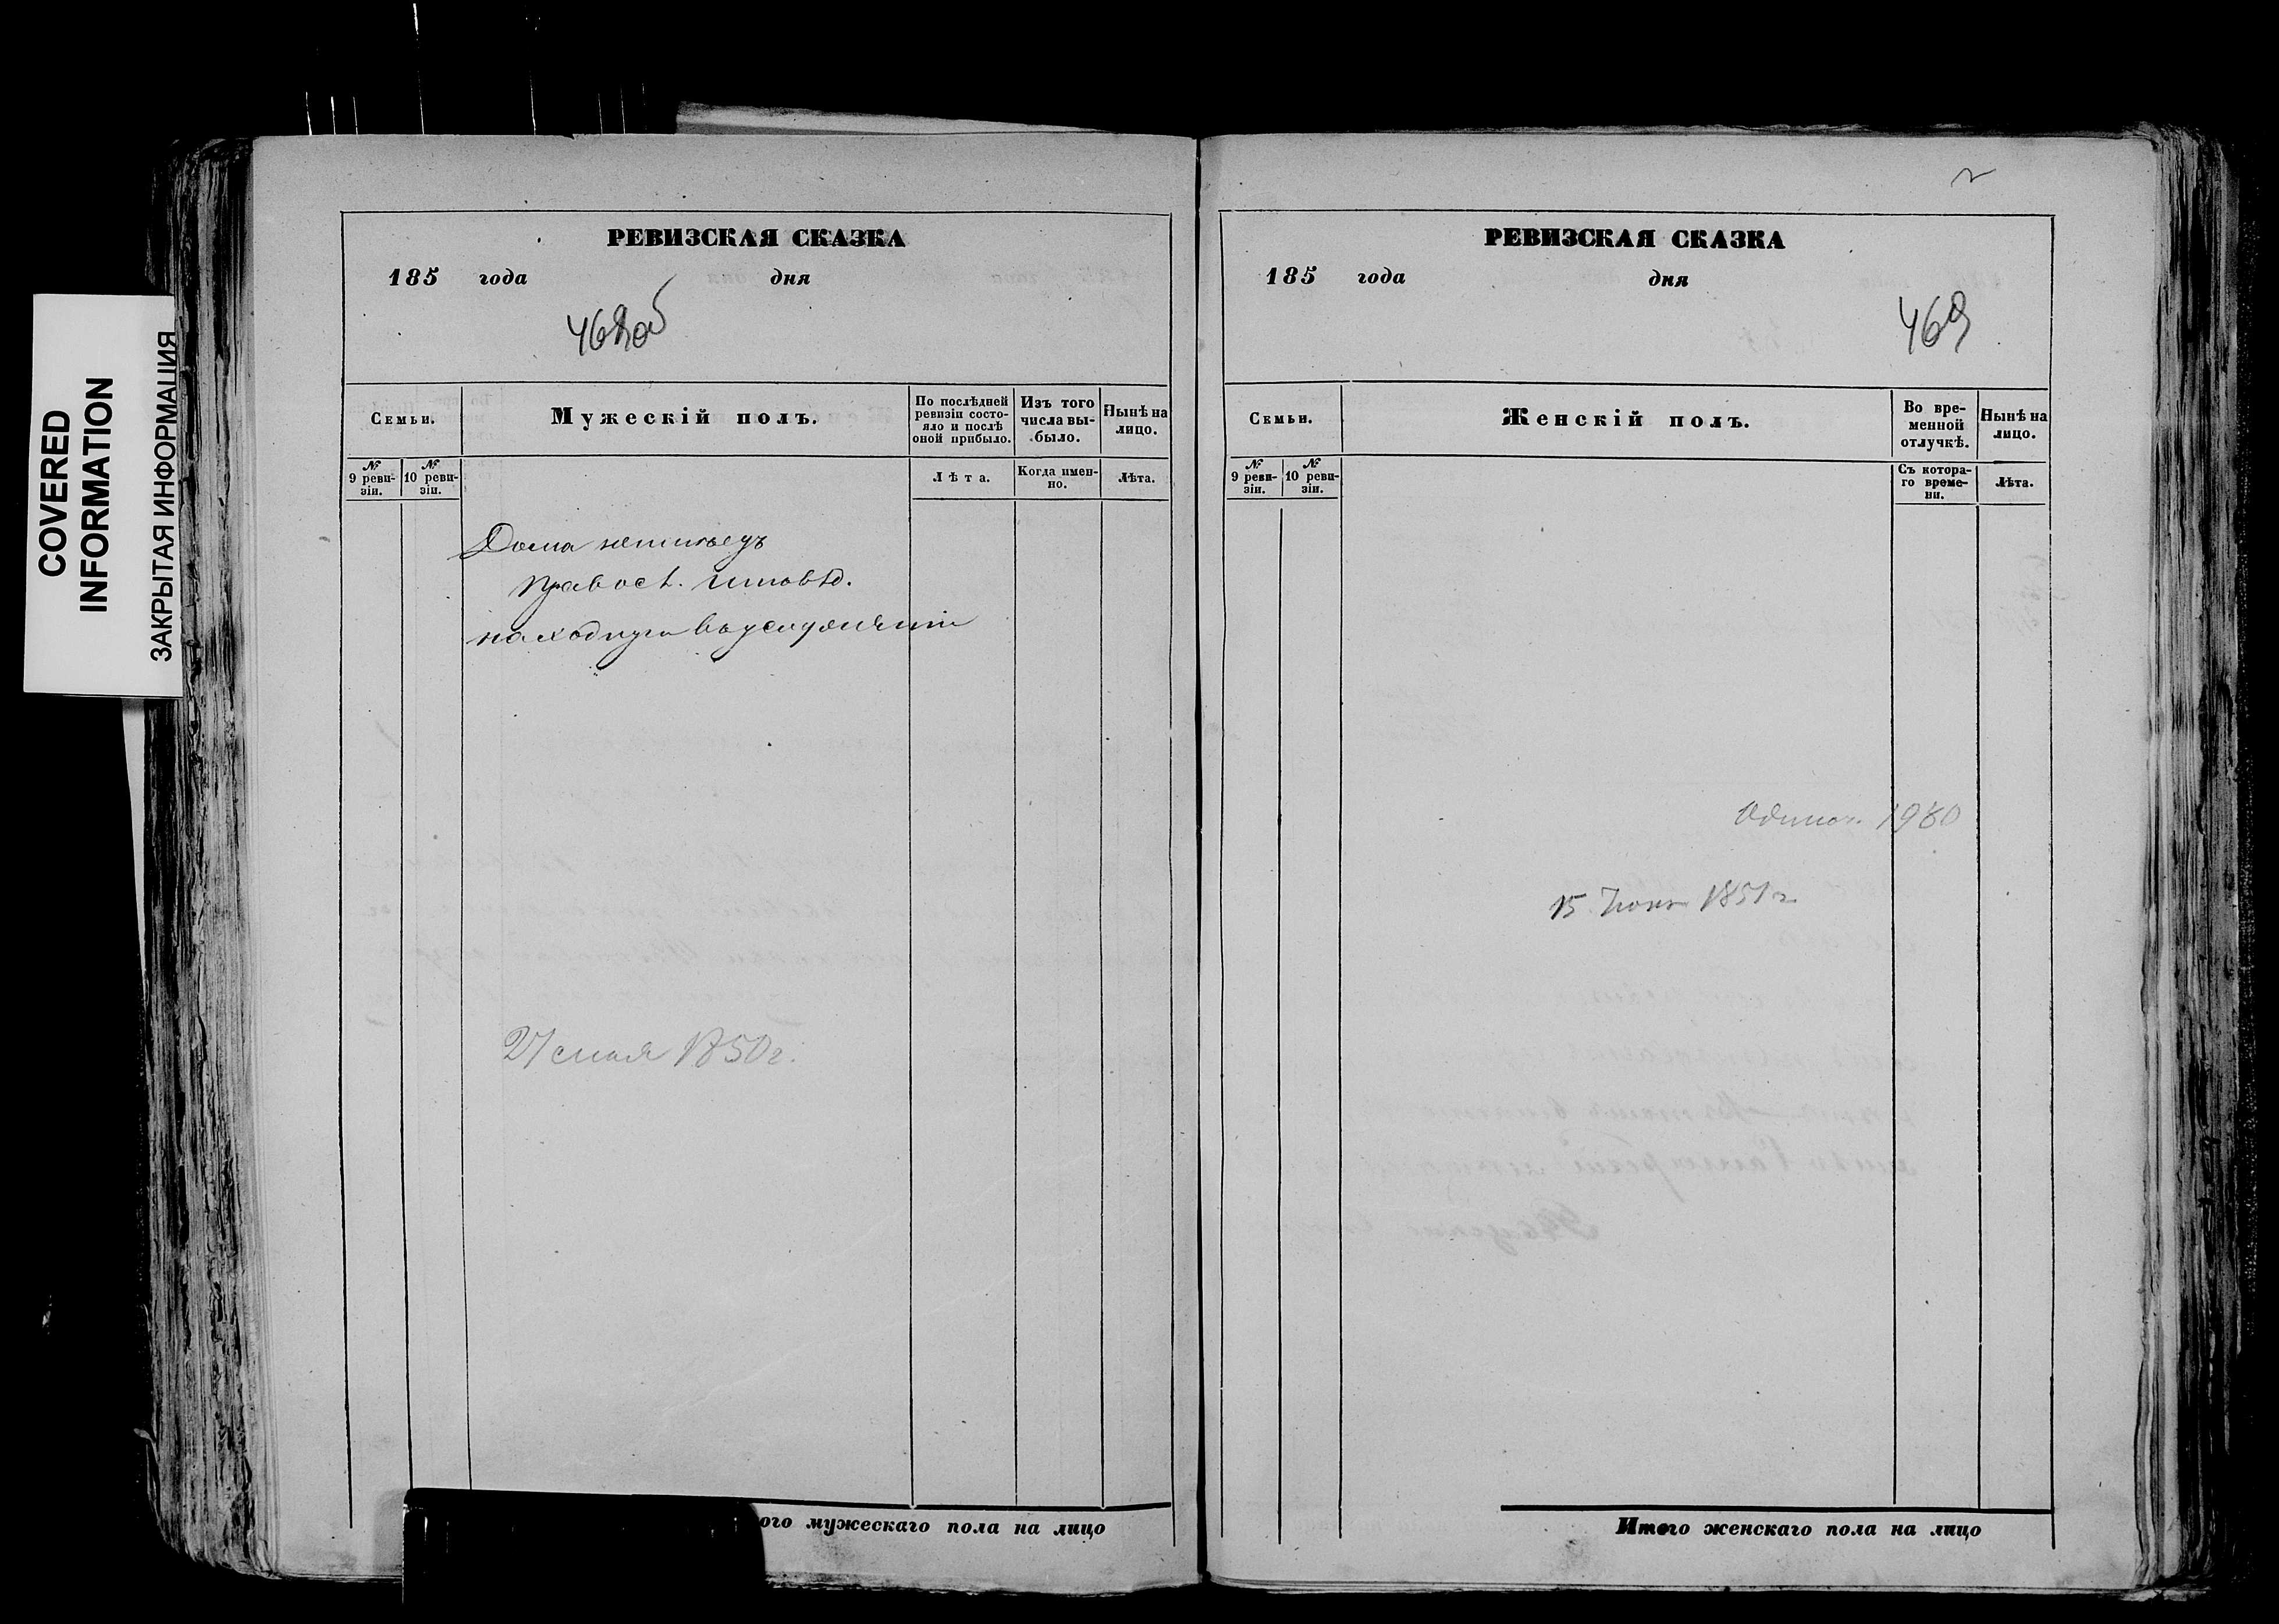 COVERED
INFORMATION
ЗАКРЫТАЯ ИНФОРМАЦИЯ
РЕВИЗСКАЯ СКАЗКА
185 года дня
468об
Семьи.
Мужескій полъ.
По послѣдней
ревизіи состо-
яло и послѣ
оной прибыло.
Изъ того
числа вы-
было.
Нынѣ на
лицо.
№
9 реви-
зіи.
№
10 реви-
зіи.
Лѣта.
Когда имен-
но.
Лѣта.
Дома
правосл. исповѣд.
находящ
27 мая 1850 г.
ого мужескаго пола на лицо
РЕВИЗСКАЯ СКАЗКА
185 года дня
469
Семьи.
Женскій полъ.
Во вре-
менной
отлучкѣ.
Нынѣ на
лицо.
№
9 реви-
зіи.
№
10 реви-
зіи.
Съ котора-
го време-
ни.
Лѣта.
15 1851 г
Итого женскаго пола на лицо